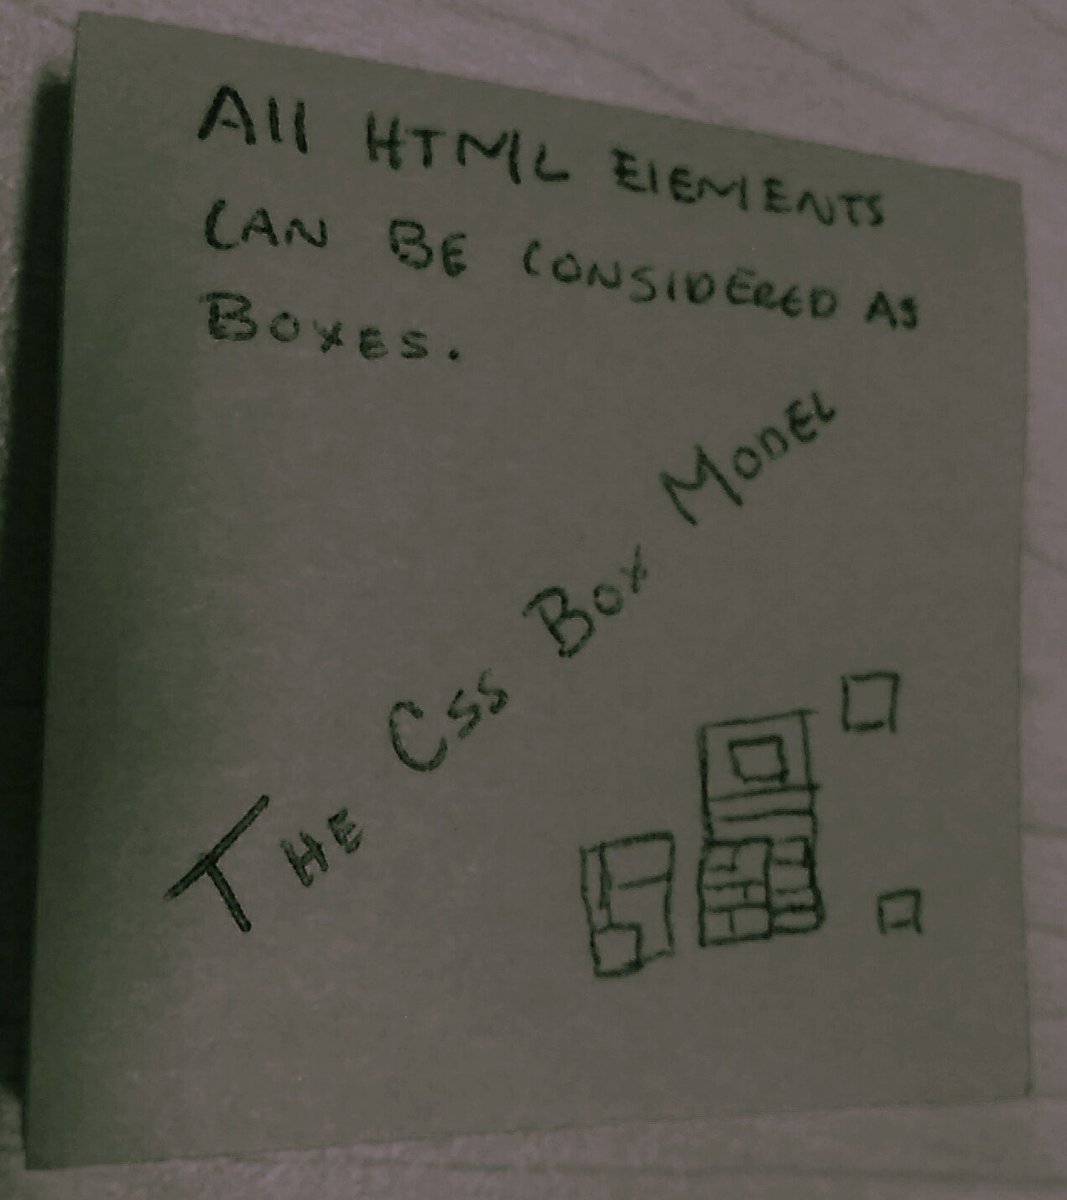 All HTML ElEMENTS
CAN BE CONSIDERED AS
BOXES.
THE CSS BOX MODEL